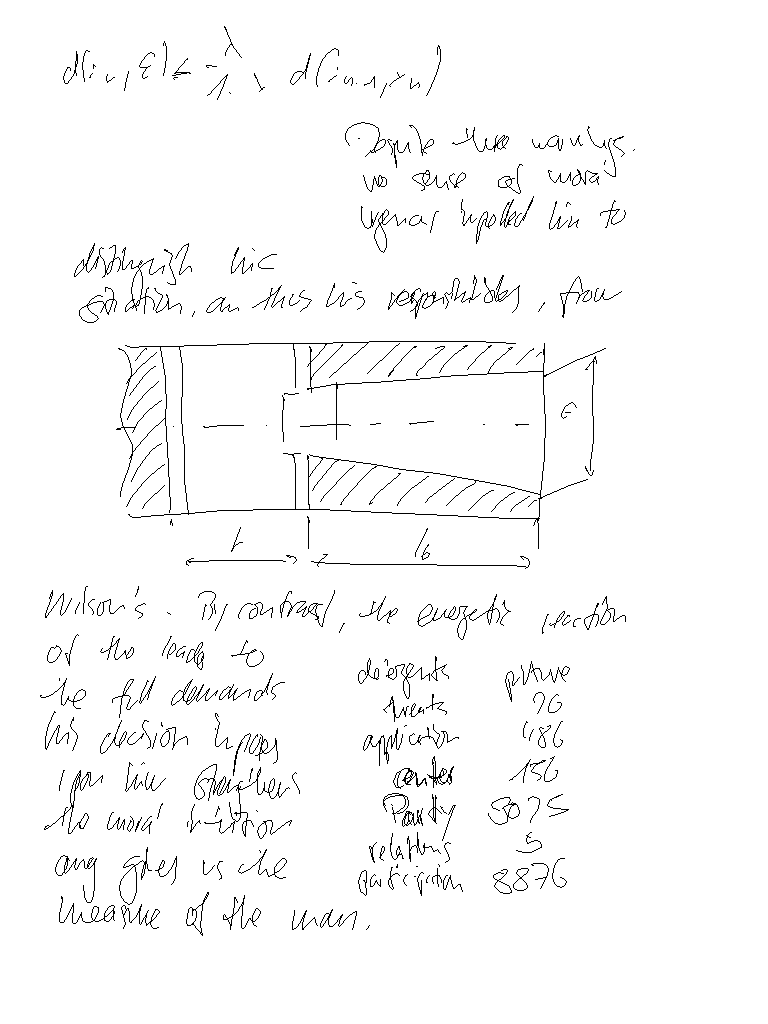 Despite these warnings.
no sense of mora
urgency impelled him to
distinguish his
situation, an thus his responsibilities, from
l6
Wilson's. By contrast, the energetic reaction
of the leads to
the full demands
his decision imposes
upon him strengthens
the mora intuition
any gives us the
measure of the man.
detergents picture
treats 26
application 486
center 156
Party 5075
relations 5
participation 8876